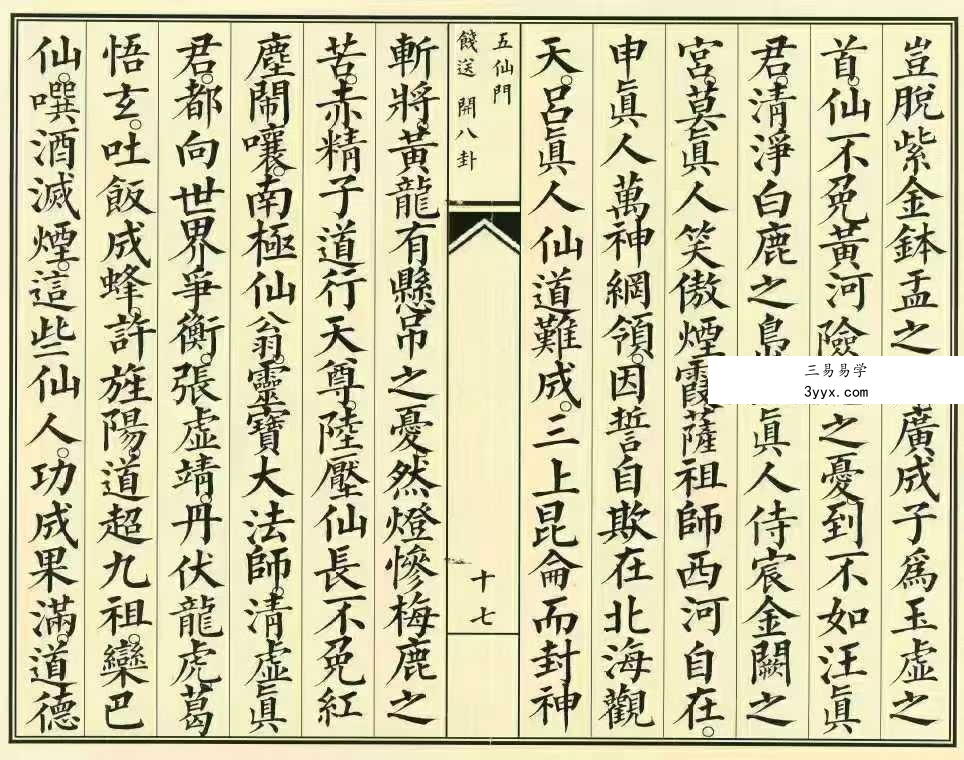 豈脫紫金鉢盂之廣成子爲玉虛之
首。仙不免黃河險之憂。到不如汪眞
君。清淨白鹿之眞人侍宸金闕之
宮。莫眞人笑傲煙霞。薩祖師西河自在。
申眞人萬神綱領。因誓自欺在北海觀
天。呂眞人仙道難成。三上昆侖而封神
五仙門
餞送 開八卦
十七
斬將。黃龍有懸吊之憂。然燈慘梅鹿之
苦。赤精子道行天尊。陸壓仙長不免紅
塵鬧嚷。南極仙翁。靈寶大法師。清虛眞
君。都向世界爭衡。張虛靖。丹伏龍虎。葛
悟玄。吐飯成蜂。許旌陽。道超九祖。欒巴
仙。噀酒滅煙。這些仙人。功成果滿。道德
三易易学
3yyx.com